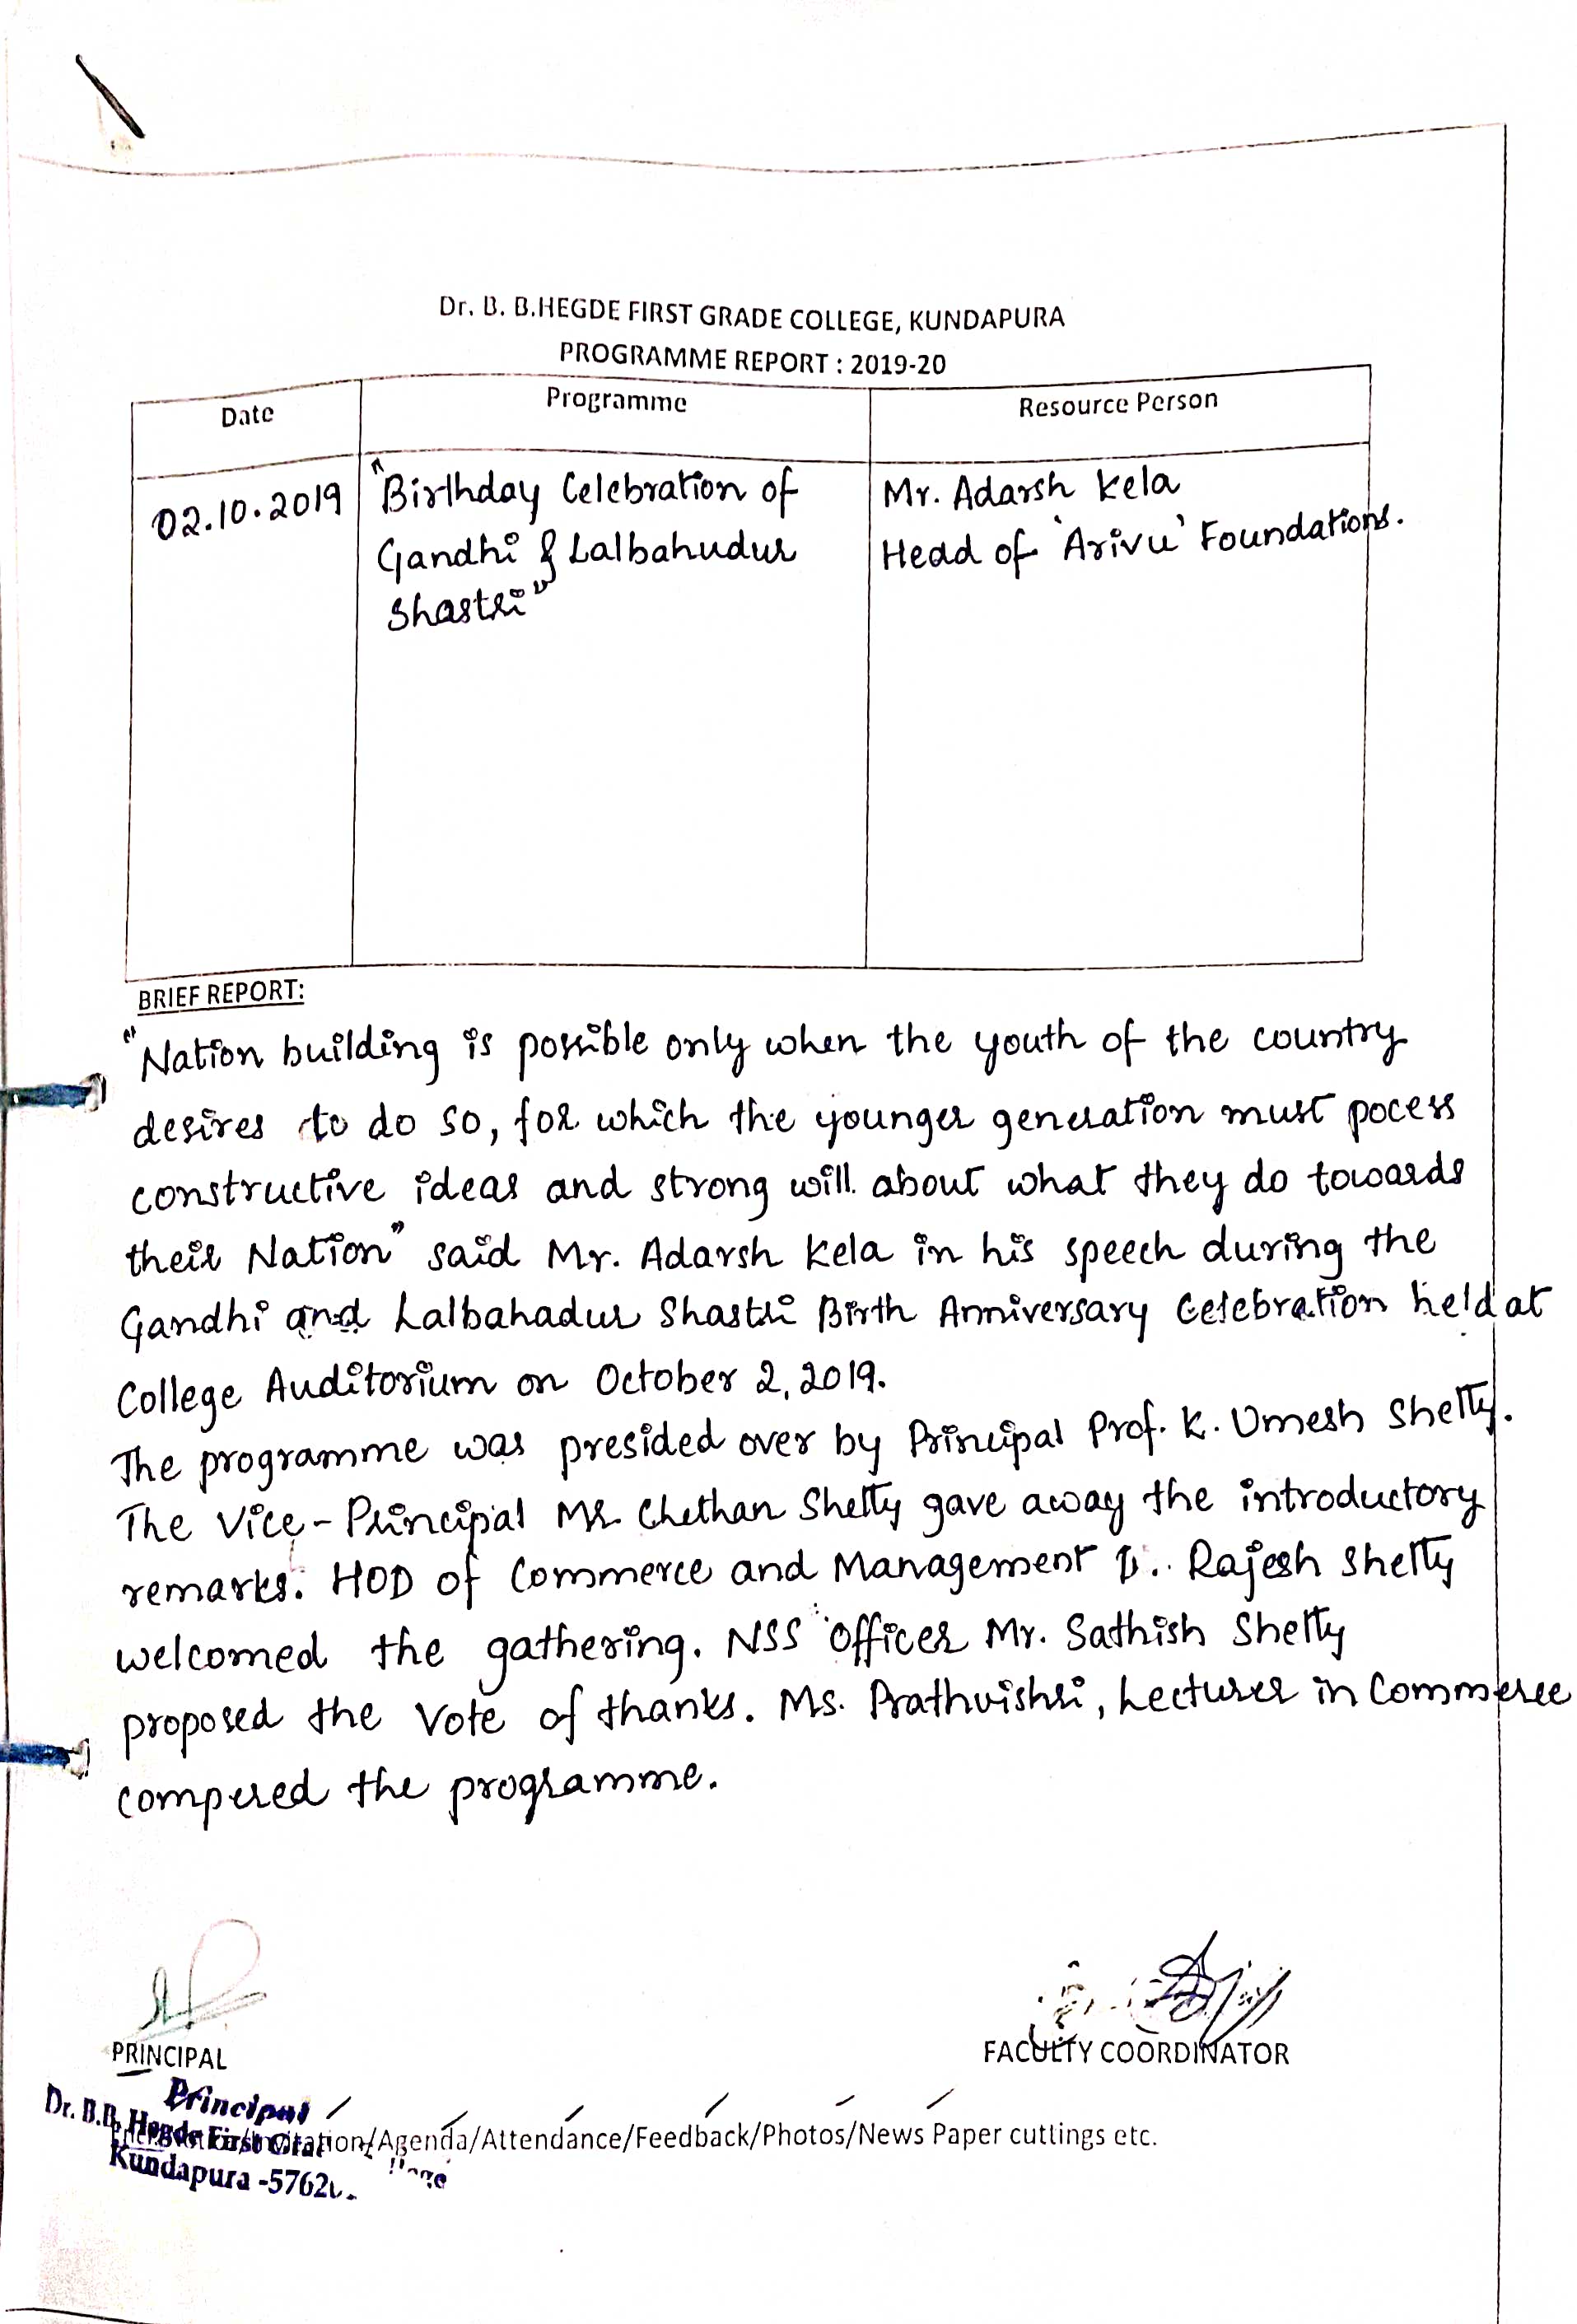 Dr. B. B.HEGDE FIRST GRADE COLLEGE, KUNDAPURA
PROGRAMME REPORT : 2019-20
Date Programme Resource Person
02.10.2019 "Birthday Celebration of Mr. Adarsh Kela
Gandhi & Lalbahudur Head of 'Arivu' Foundations.
Shastri"
BRIEF REPORT:
"Nation building is possible only when the youth of the country
desires to do so, for which the younger generation must pocess
constructive ideas and strong will about what they do towards
their Nation" said Mr. Adarsh Kela in his speech during the
Gandhi and Lalbahadur Shastri Birth Anniversary Celebration held at
College Auditorium on October 2, 2019.
The programme was presided over by Principal Prof. K. Umesh Shetty.
The Vice-Principal Mr. Chethan Shetty gave away the introductory
remarks. HOD of Commerce and Management Rajesh Shetty
welcomed the gathering. NSS Officer Mr. Sathish Shetty
proposed the Vote of thanks. Ms. Prathvishri, Lecturer in Commerce
compered the programme.
PRINCIPAL FACULTY COORDINATOR
Principal
Dr. B.B. Hegde First
/Agenda/Attendance/Feedback/Photos/News Paper cuttings etc.
Kundapura